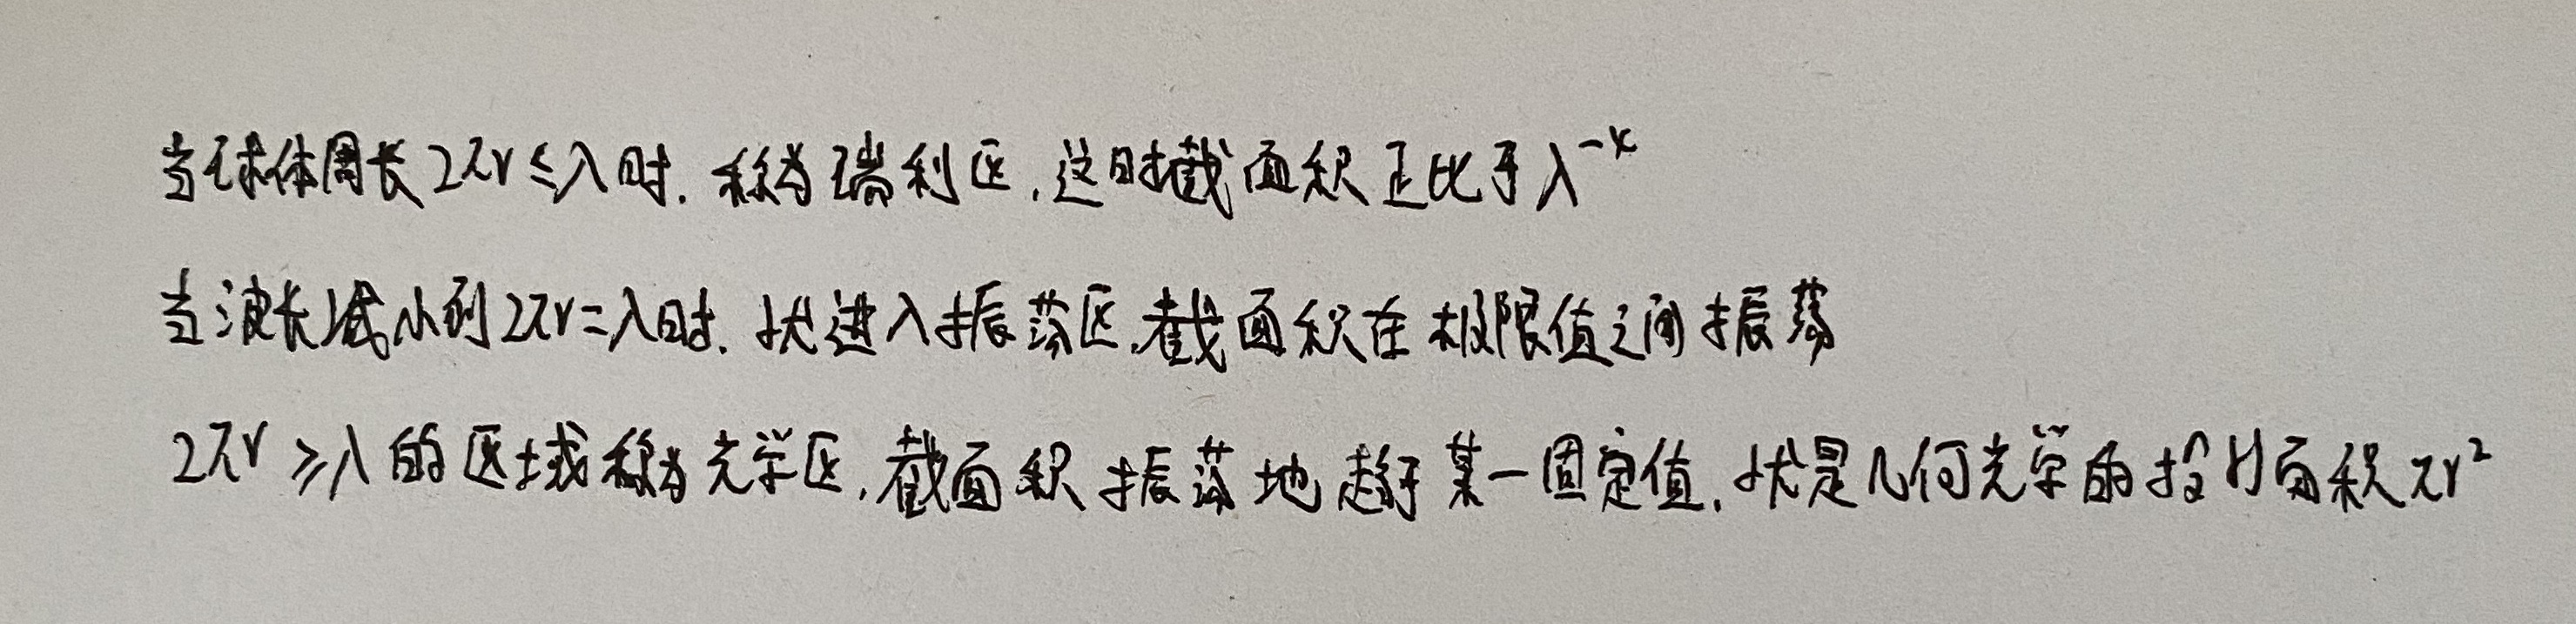 当球体周长2πr≤λ时.称为瑞利区,这时截面积正比于λ⁻⁴
当波长减小到2πr=λ时.就进入振荡区,截面积在极限值之间振荡
2πr≥λ的区域称为光学区,截面积振荡地趋于某一固定值,就是几何光学的投射面积πr²